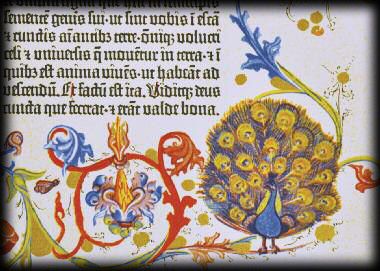 semētem geň[us] sui · ut sint vobis ī escā
⁊ cundis aīantib[us] terre · oīq[ue] volucri
celi ⁊ universis q̄ movētur in terra · ⁊ ī
quib[us] est anima vivēs · ut habeāt ad
vescendū. Et factū est ita. Viditq[ue] deus
cuncta que fecerat · ⁊ erāt valde bona.